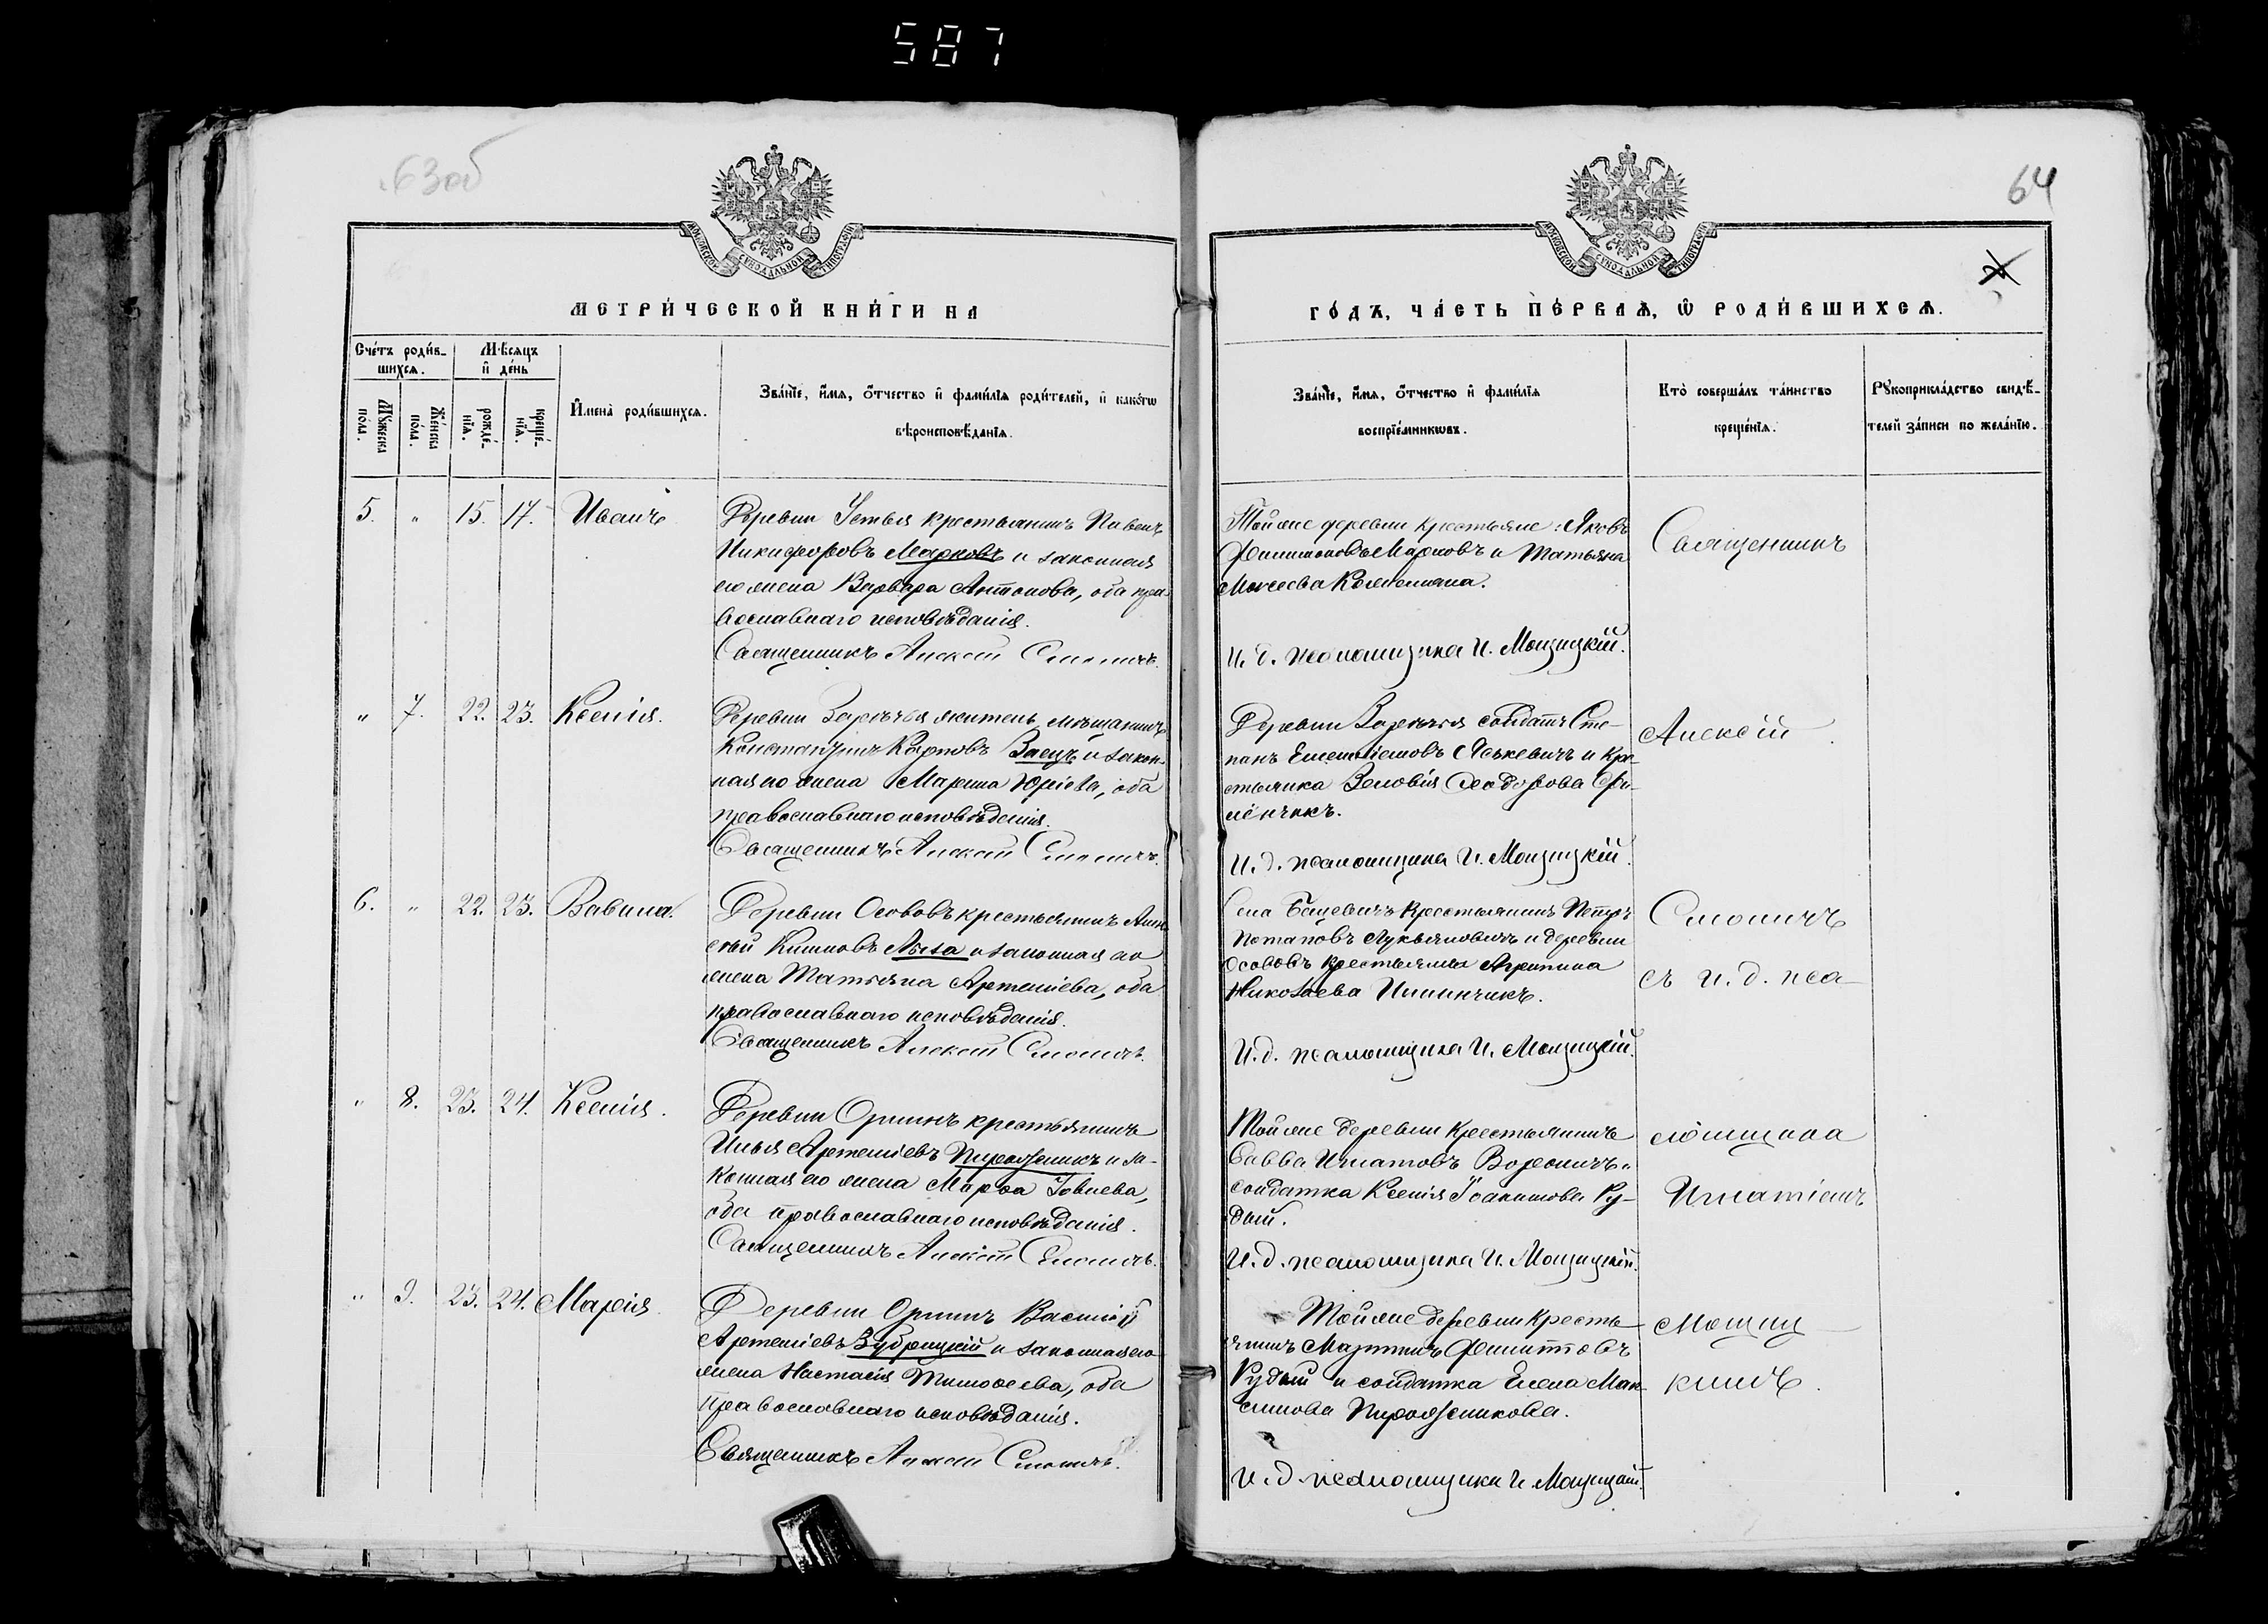 587
63об
64
МОСКОВСКОЙ СУНОДАЛЬНОЙ ТИПОГРАФІИ
МОСКОВСКОЙ СУНОДАЛЬНОЙ ТИПОГРАФІИ
МЕТРИ́ЧЕСКОЙ КНИ́ГИ НА
ГО́ДЪ, ЧА́СТЬ ПЕ́РВАЯ, Ѿ РОДИ́ВШИХСЯ.
Сче́тъ роди́в-
шихся.
Мѣ́сяцъ
и҆ де́нь
Мꙋ́жеска
по́ла.
Же́нска
по́ла.
рожде́-
нїѧ.
креще́-
нїѧ.
И҆мена̀ роди́вшихся.
Зва́нїе, и҆́мѧ, ѻ҆́тчество и҆ фами́лїѧ роди́телей, и҆ како́гѡ
вѣроисповѣ́данїѧ.
Зва́нїе, и҆́мѧ, ѻ҆́тчество и҆ фами́лїѧ
воспрїе́мникѡвъ.
Кто̀ соверша́лъ та́инство
креще́нїѧ.
Рꙋкоприкла́дство свидѣ́-
телей за́писи по жела́нїю.
5. " 15. 17. Иванъ
Деревни Устья крестьянинъ Павелъ
Никифоровъ Марковъ и законная
его жена Варвара Антонова, оба пра-
вославнаго исповѣданія.
Священникъ Алексій Смоличъ.
Той же деревни крестьяне: Яковъ
Филимоновъ Марковъ и Татьяна
Моисеева
И. д. псаломщика И. Мощицкій.
Священникъ
" 7. 22. 23. Ксенія.
Деревни Зарѣчья житель мѣщанинъ
Константинъ Карповъ Заецъ и закон-
ная его жена Марина Юріева, оба
православнаго исповѣданія.
Священникъ Алексій Смоличъ.
Деревни Зарѣчья солдатъ Сте-
панъ Емельяновъ Яськевичъ и кре-
стьянка Зеновія Ѳеодорова
И. д. псаломщика И. Мощицкій.
Алексій
6. " 22. 23. Вавила.
Деревни Ососовъ крестьянинъ
Климовъ и законная его
жена Татьяна Артеміева, оба
православнаго исповѣданія.
Священникъ Алексій Смоличъ.
Села крестьянинъ Петръ
Потаповъ Лукьяновичъ и деревни
Ососовъ крестьянка Агрипина
Николаева
И. д. псаломщика И. Мощицкій.
Смоличъ
съ и. д. пса-
" 8. 23. 24. Ксенія.
Деревни крестьянинъ
Илья Артеміевъ Пирожникъ и за-
конная его жена Марѳа Іовлева,
оба православнаго исповѣданія.
Священникъ Алексій Смоличъ.
Той же деревни крестьянинъ
Савва Игнатовъ и
солдатка Ксенія Іоакимова Ру-
дый.
И. д. псаломщика И. Мощицкій.
ломщика
Игнатіемъ
" 9. 23. 24. Марія.
Деревни Василій
Артеміевъ Зубрицкій и законная его
жена Настасія Тимоѳеева, оба
православнаго исповѣданія.
Священникъ Алексій Смоличъ.
Той же деревни кресть-
янинъ Мартинъ Филиповъ
Рудый и солдатка Елена Мак-
симова Пирожникова.
И. д. псаломщика И. Мощицкій.
Мощиц-
кимъ.